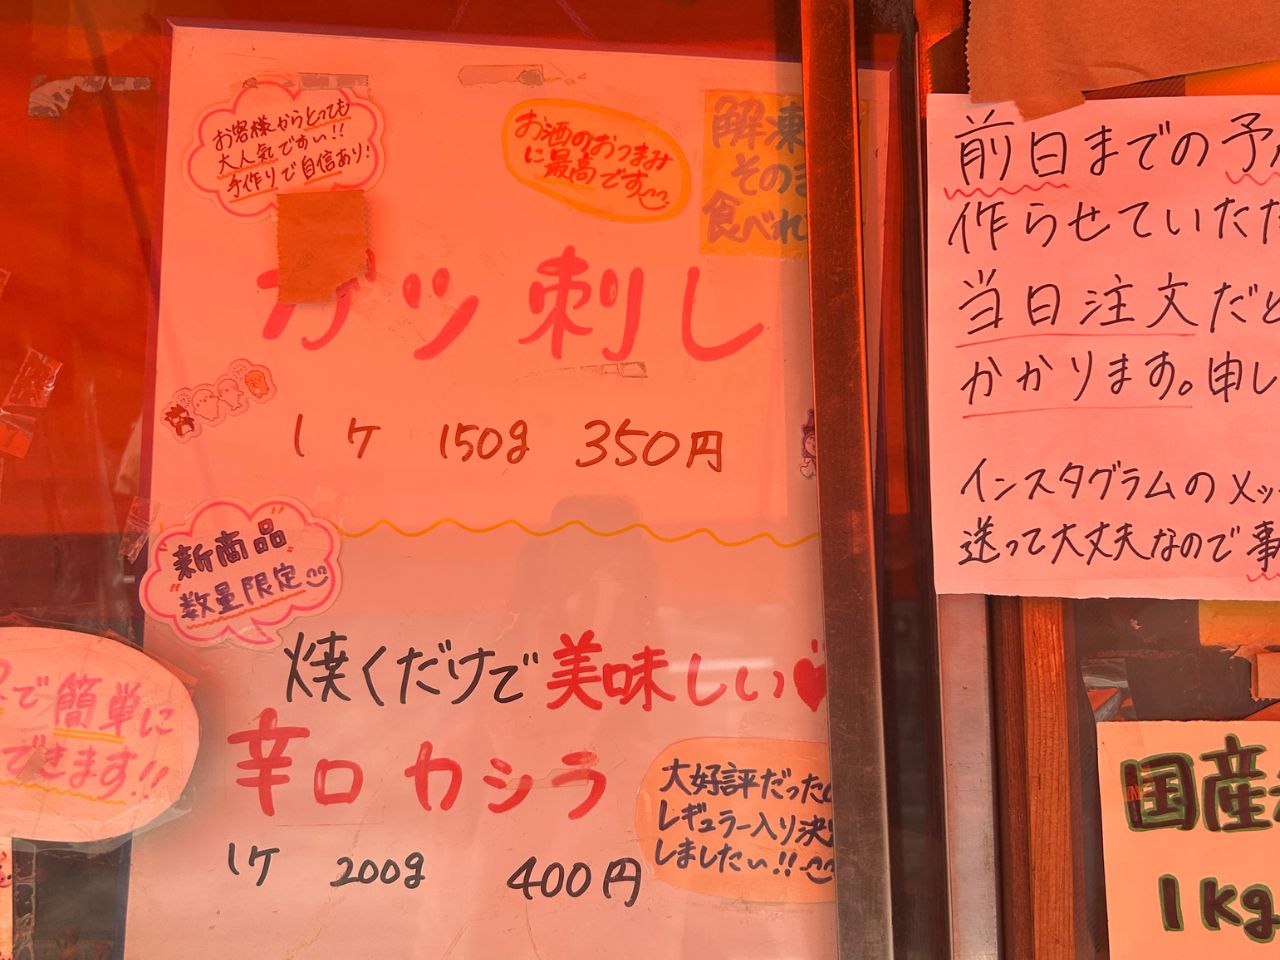 お客様からとっても
大人気ですい!!
手作りで自信あり!
お酒のおつまみ
に最高です
解凍
そのま
食べれ
ガツ刺し
1ケ 150g 350円
新商品
数量限定
焼くだけで美味しい♥
辛口カシラ
1ケ 200g 400円
大好評だった
レギュラー入り決
しましたい!!
で簡単に
できます!!
前日までの予
作らせていただ
当日注文だと
かかります。申し
インスタグラムのメッ
送って大丈夫なので事
国産
1kg